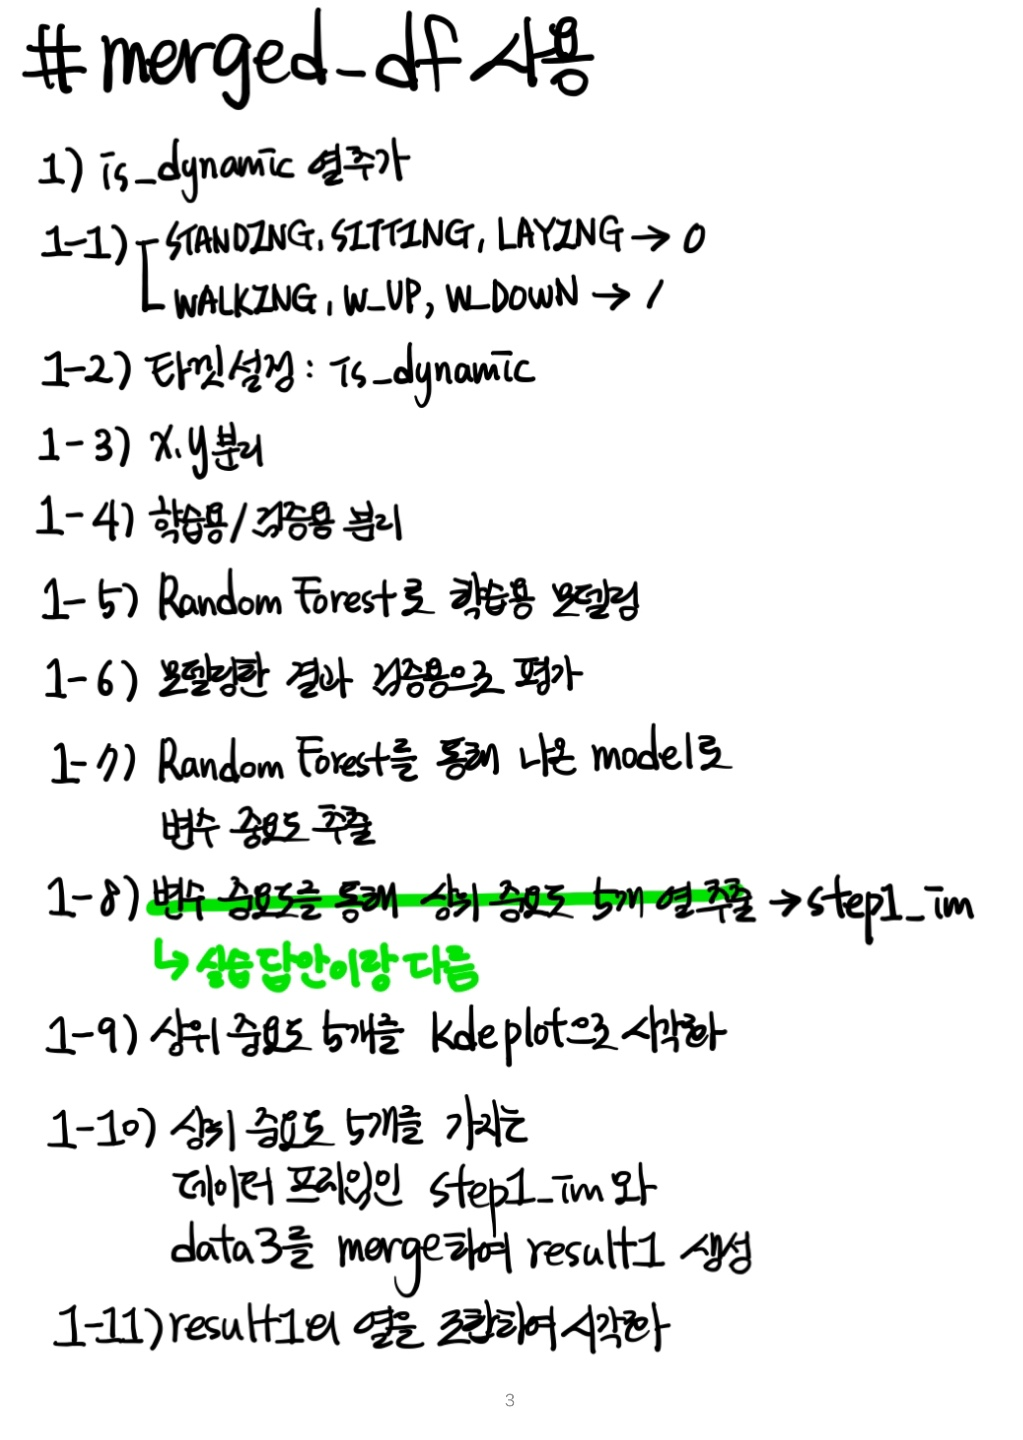 # merged_df 사용
1) is_dynamic 열추가
1-1) STANDING, SITTING, LAYING → 0
WALKING, W_UP, W_DOWN → 1
1-2) 타깃설정 : is_dynamic
1-3) x, y분리
1-4) 학습용/검증용 분리
1-5) Random Forest로 학습용 모델링
1-6) 모델링한 결과 검증용으로 평가
1-7) Random Forest를 통해 나온 model로
변수 중요도 추출
1-8) 변수 중요도를 통해 상위 중요도 5개 열 추출 → step1_im
↳ 실습답안이랑 다름
1-9) 상위 중요도 5개를 kdeplot으로 시각화
1-10) 상위 중요도 5개를 가지는
데이터 프레임인 step1_im와
data3를 merge하여 result1 생성
1-11) result1의 열을 조합하여 시각화
3